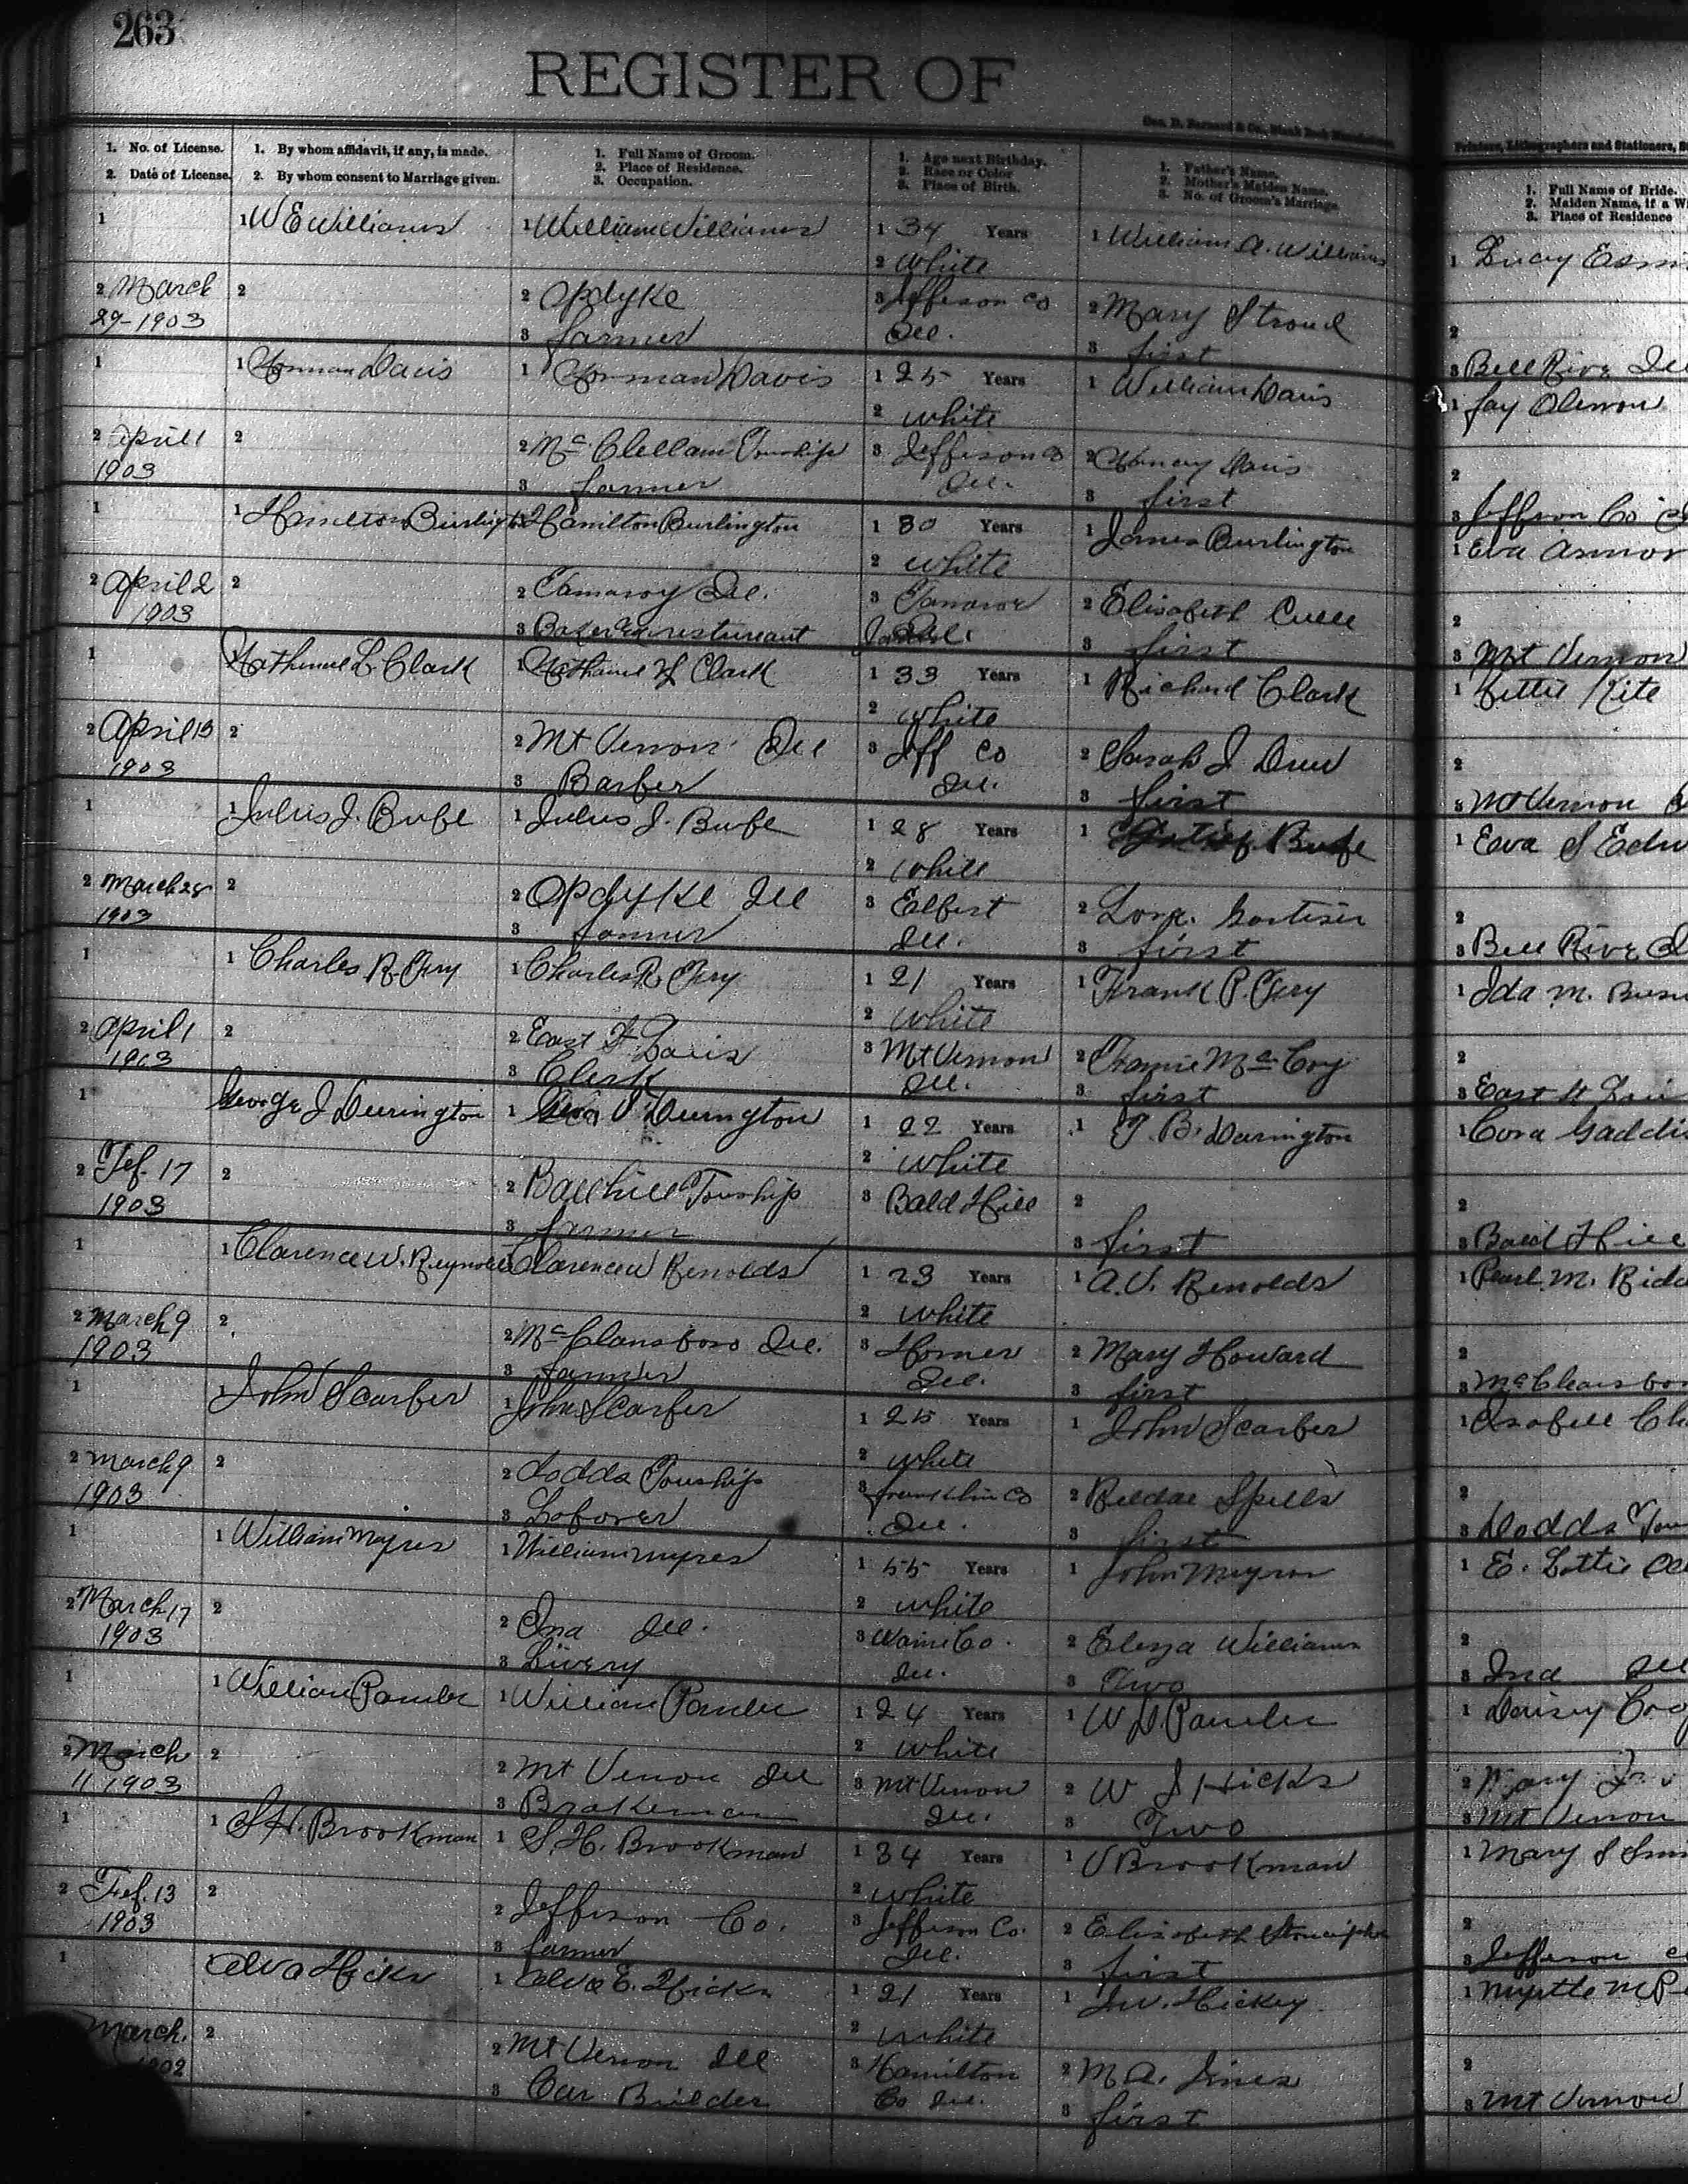 263
REGISTER OF
Geo. D. Barnard & Co., Blank Book Manufacturers
Printers, Lithographers and Stationers,
1. No. of License.
2. Date of License.
1. By whom affidavit, if any, is made.
2. By whom consent to Marriage given.
1. Full Name of Groom.
2. Place of Residence.
3. Occupation.
1. Age next Birthday.
2. Race or Color
3. Place of Birth.
1. Father's Name.
2. Mother's Maiden Name.
3. No. of Groom's Marriage.
1. Full Name of Bride.
2. Maiden Name, if a Wi
3. Place of Residence
1
2 March
29-1903
1 W E Williams
2
1 William Williams
2 Opdyke
3 farmer
1 34 Years
2 White
3 Jeffison Co
Ill.
1 William A. Williams
2 Mary Stroud
3 first
1 Lucy
2
3 Bell Rive Ill
1
2 April 1
1903
1 Norman Davis
2
1 Norman Davis
2 Mc Clellam Township
3 farmer
1 25 Years
2 white
3 Jeffison Co
Ill.
1 William Davis
2 Nancy Davis
3 first
1 Fay
2
3 Jeffson Co
1
2 April 2
1903
1 Hamilton Burlington
2
1 Hamilton Burlington
2 Tamaroy Ill.
3 Baker restureant
1 30 Years
2 white
3 Tamaroe
1 James Burlington
2 Elisabeth
3 first
1 Eva Armor
2
3 Mt Vernon
1
2 April 13
1903
Nathaniel L. Clark
2
1 Nathaniel L Clark
2 Mt Vernon Ill
3 Barber
1 33 Years
2 white
3 Jeff Co
Ill.
1 Richard Clark
2 Sarah J
3 first
1 Kettie Kite
2
3 Mt Vernon
1
2 March 28
1903
1 Julius J. Bube
2
1 Julius J. Bube
2 Opdyke Ill
3 farmer
1 28 Years
2 White
3 Elbert
Ill.
1 Bube
2
3 first
1 Eva S Edw
2
3 Bell Rive I
1
2 April 1
1903
1 Charles R.
2
1 Charles R.
2 East St Louis
3 Clerk
1 21 Years
2 White
3 Mt Vernon
Ill.
1 Frank P.
2 Mc Coy
3 first
1 Ida M.
2
3 East St Loui
1
2 Feb. 17
1903
George J Durington
2
1 Geo J Durington
2 Township
3 farmer
1 22 Years
2 White
3 Bald Hill
1 J. B. Darington
2
3 first
1 Cora Gaddis
2
3 Bald Hill
1
2 March 9
1903
1 Clarence W. Reynolds
2
1 Clarence W Renolds
2 Mc Clansboro Ill.
3 farmer
1 23 Years
2 White
3 Homer
Ill.
1 A. V. Renolds
2 Mary Howard
3 first
1 Pearl M. Ridd
2
3 Mc Cleansbor
1
2 March 9
1903
1 John Scarber
2
1 John Scarber
2 Dodds Township
3 Laborer
1 25 Years
2 white
3 Franklin Co
Ill.
1 John Scarber
2 Spills
3 first
1 Isabell Ch
2
3 Dodds Tow
1
2 March 17
1903
1 William Myres
2
1 William Myres
2 Ina Ill.
3 Livery
1 55 Years
2 white
3 Waine Co.
Ill.
1 John
2 Eleza Williams
3 Two
1 E. Lottie
2
3 Ina Ill
1
2 March
11 1903
1 William
2
1 William
2 Mt Vernon Ill
3 Brakeman
1 24 Years
2 White
3 Mt Vernon
Ill.
1 W. D.
2 W J Hicks
3 Two
1 Daisy
2 Mary
3 Mt Vernon
1
2 Feb. 13
1903
1 S. H. Brookman
2
1 S. H. Brookman
2 Jeffison Co.
3 farmer
1 34 Years
2 White
3 Jeffison Co.
Ill.
1 J Brookman
2 Elisabeth
3 first
1 Mary S
2
3 Jefferson
1
March.
1902
1 Alva Hicks
2
1 Alva E. Hicks
2 Mt Vernon Ill
3 Car Builder
1 21 Years
2 White
3 Hamilton
Co Ill.
1 Hickey
2 M. A. Jines
3 first
1 Myrtle M
2
3 Mt Vernon